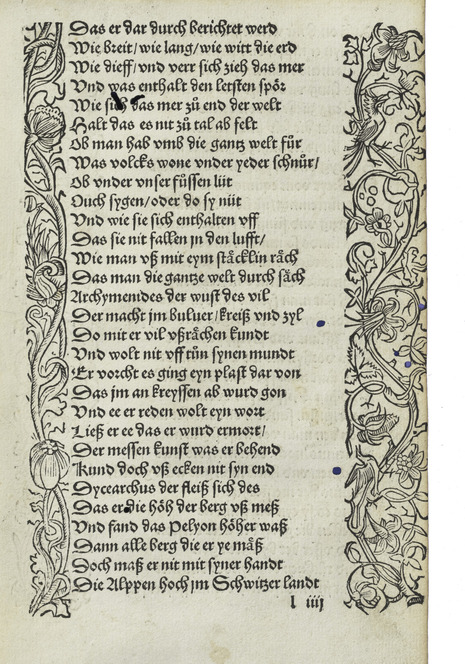 Das er dar durch berichtet werd
Wie breit/ wie lang/ wie witt die erd
Wie dieff/ vnd verr sich zieh das mer
Vnd was enthalt den letsten spör
Wie sich das mer zů end der welt
Halt das es nit zů tal ab felt
Ob man hab vmb die gantz welt für
Was volcks wone vnder yeder schnůr/
Ob vnder vnser füssen lüt
Ouch sygen/ oder do sy nüt
Vnd wie sie sich enthalten vff
Das sie nit fallen jn den lufft/
Wie man vß mit eym stäcklin räch
Das man die gantze welt durch säch
Archymenides der wust des vil
Der macht jm buluer/ kreiß vnd zyl
Do mit er vil vßrächen kundt
Vnd wolt nit vff tůn synen mundt
Er vorcht es ging eyn plast dar von
Das jm an kreyssen ab wurd gon
Vnd ee er reden wolt eyn wort
Ließ er ee das er wurd ermort/
Der messen kunst was er behend
Kund doch vß ecken nit syn end
Dycearchus der fleiß sich des
Das er die höh der berg vß meß
Vnd fand das Pelyon höher waß
Dann alle berg die er ye mäß
Doch maß er nit mit syner handt
Die Alppen hoch jm Schwitzer landt
l iiij